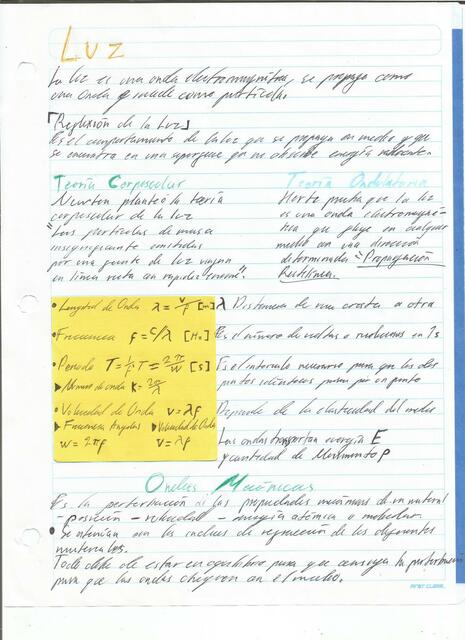 Luz
La luz es una onda electromagnética, se propaga como
una onda y incide como partículas.
"Reflexión de la Luz"
Es el comportamiento de la luz que se propaga en medio y que
se encuentra en una superficie que no absorbe energía
Teoría Corpuscular
Newton planteó la teoría
corpuscular de la luz
"Las partículas de masa
insignificante emitidas
por una fuente de luz viajan
en línea recta con rapidez
Teoría Ondulatoria
Hertz prueba que la luz
es una onda electromagné-
tica que fluye en cualquier
medio en una dirección
determinada "Propagación
Rectilínea.
• Longitud de Onda λ = v/f [m] λ Distancia de una cresta a otra
• Frecuencia f = c/λ [Hz] Es el número de vueltas o en 1s
• Periodo T = 1/f T = 2π/w [s] Es el intervalo necesario para que los dos
puntos idénticos pasen por un punto
▶ Número de onda K = 2π/λ
• Velocidad de Onda v = λf Depende de la elasticidad del medio
▶ Frecuencia Angular ▶ Velocidad de Onda
w = 2πf v = λf
Las ondas transportan energía E
y cantidad de Movimiento P
Ondas Mecánicas
Es la perturbación de las propiedades mecánicas de un material
- posición - velocidad - energía atómica o molecular
• Se atenúan con los índices de refracción de los diferentes
materiales.
Todo debe de estar en equilibrio para que se la perturbación
para que las ondas en el medio.
FIRST CLASS